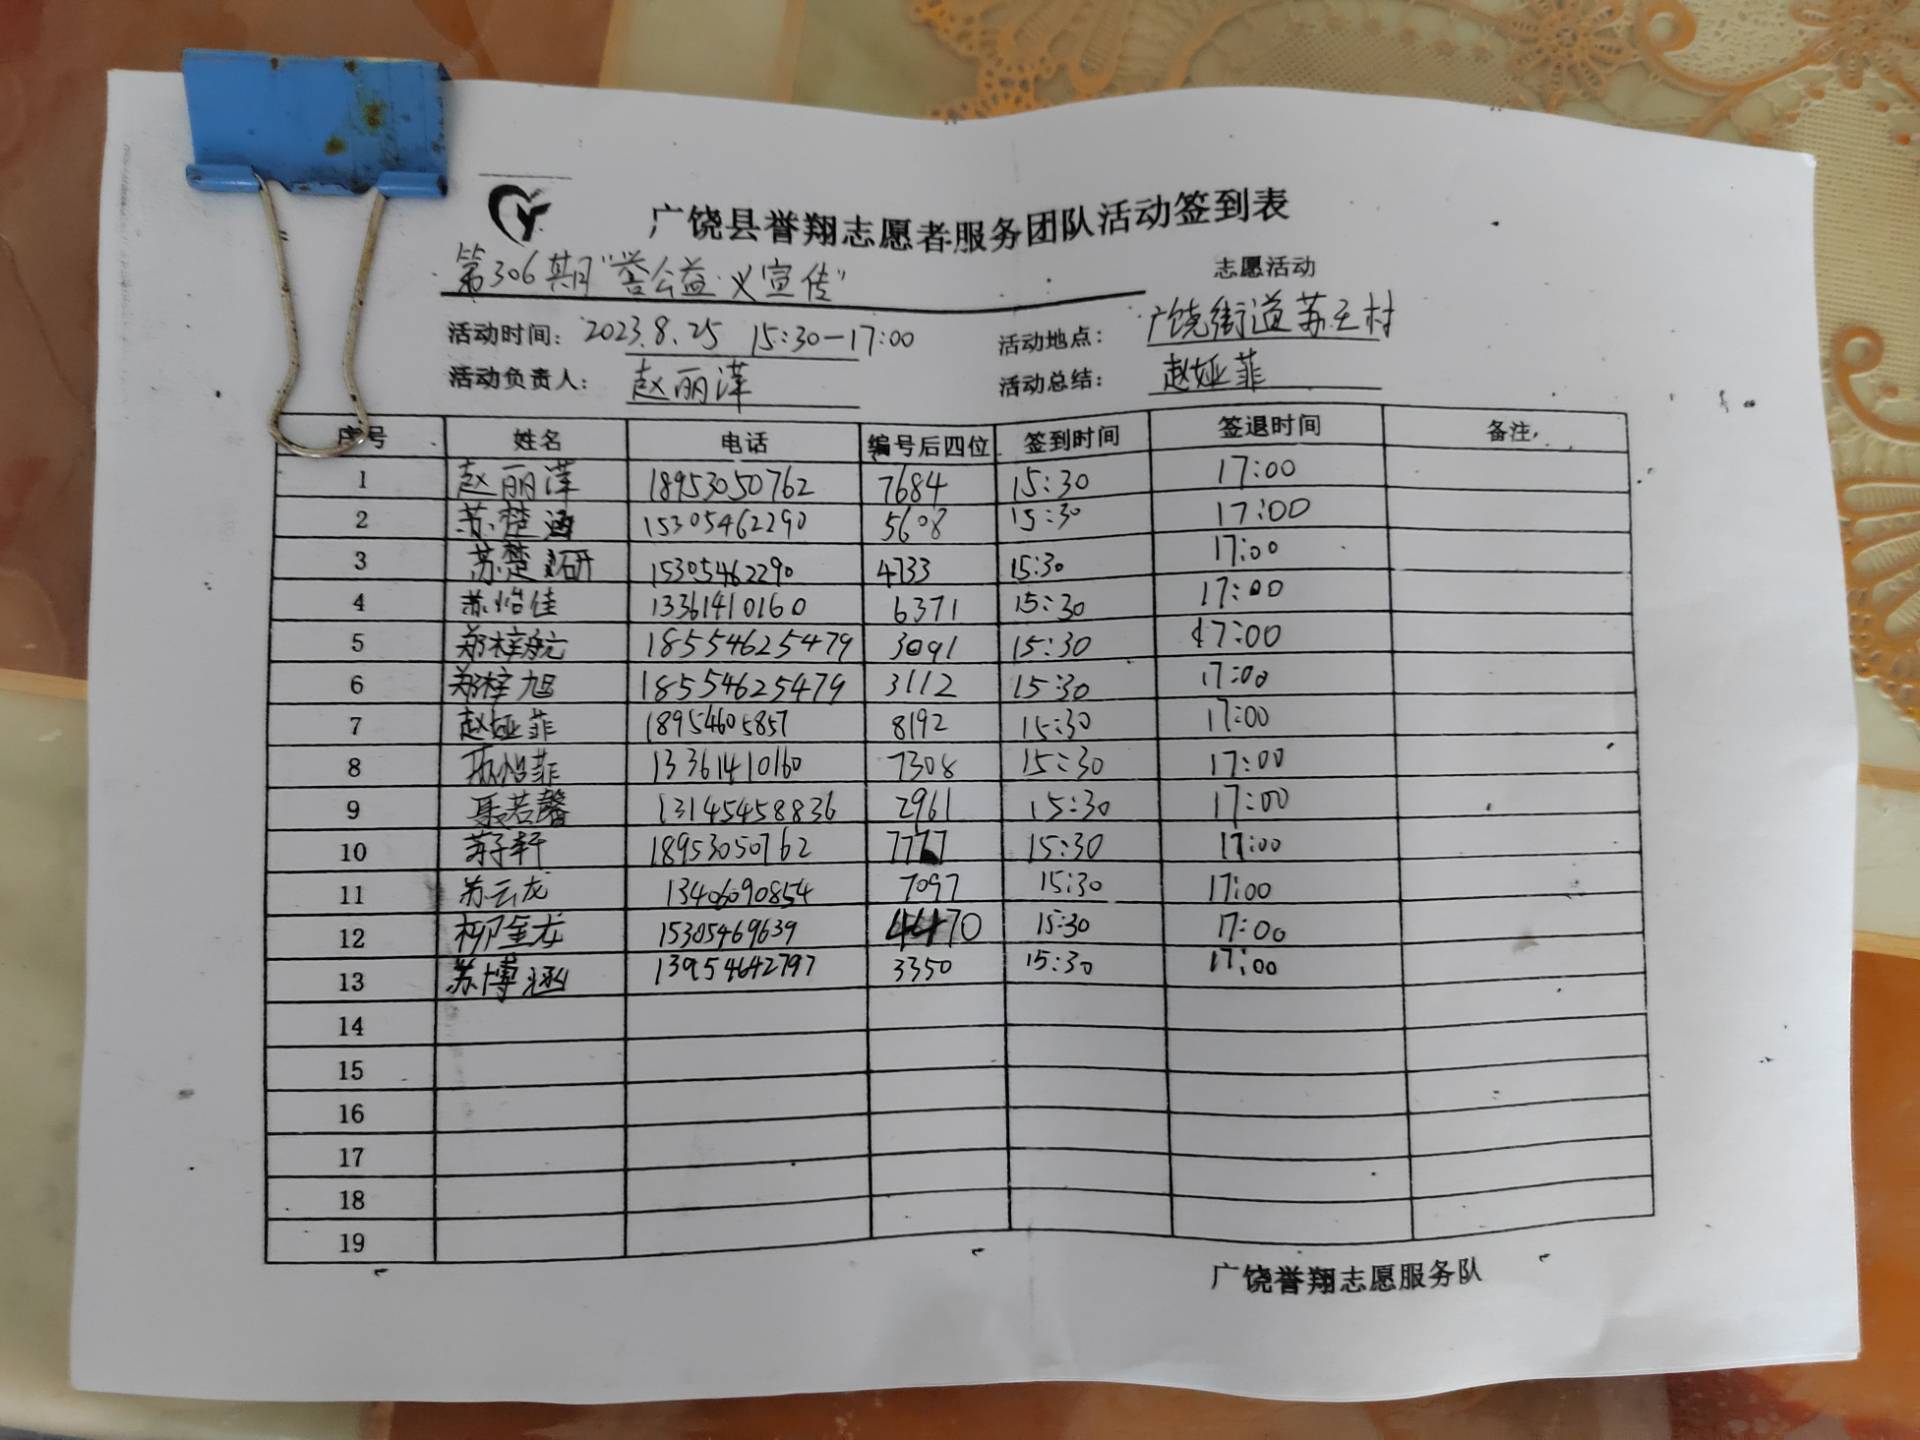 广饶县誉翔志愿者服务团队活动签到表
第306期"誉公益·义宣传" 志愿活动
活动时间: 2023.8.25 15:30-17:00 活动地点: 广饶街道苏王村
活动负责人: 赵丽萍 活动总结: 赵娅菲
序号 姓名 电话 编号后四位 签到时间 签退时间 备注
1 赵丽萍 18953050762 7684 15:30 17:00
2 苏楚涵 15305462290 5608 15:30 17:00
3 苏楚研 15305462290 4733 15:30 17:00
4 苏怡佳 13361410160 6371 15:30 17:00
5 郑梓航 18554625479 3091 15:30 17:00
6 郑梓旭 18554625479 3112 15:30 17:00
7 赵娅菲 18954605857 8192 15:30 17:00
8 怡菲 13361410160 7308 15:30 17:00
9 聂若馨 13145458836 2961 15:30 17:00
10 苏子轩 18953050762 15:30 17:00
11 苏云龙 13406090854 7097 15:30 17:00
12 柳金龙 15305469639 15:30 17:00
13 苏博涵 13954642797 3350 15:30 17:00
14
15
16
17
18
19
广饶誉翔志愿服务队